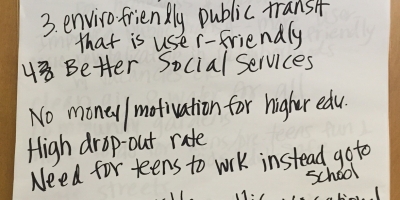 3. enviro friendly public transit
that is user-friendly
4. Better Social Services
No money/motivation for higher edu.
High drop-out rate
Need for teens to wrk instead go to
school